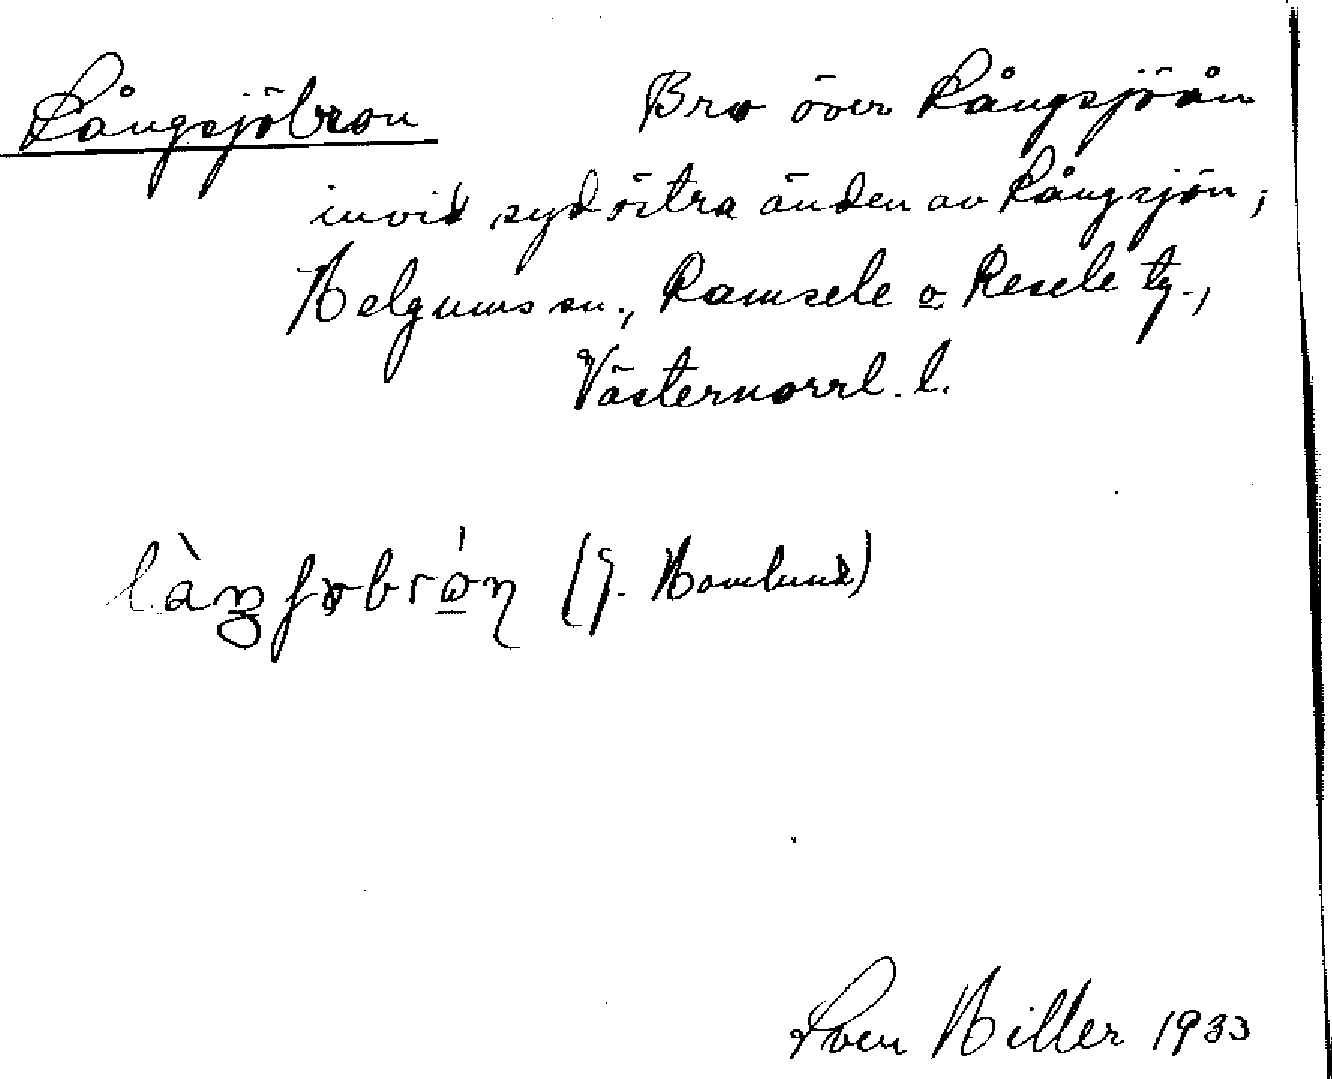 Långsjöbron Bro över Långsjöån
invid sydöstra änden av Långsjön,
Helgums sn., Ramsele o Resele tg.,
Västernorrl. l.
(J. Homlund)
Sven Hiller 1933